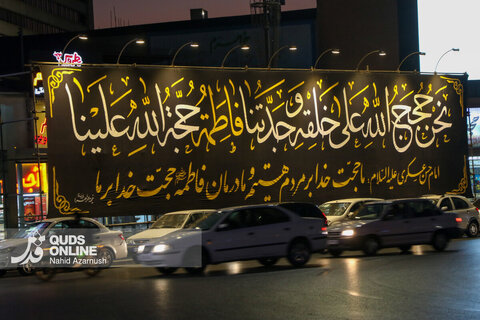 نحن حجج الله علی خلقه و جدتنا فاطمة حجة الله علینا
امام حسن عسکری علیه‌السلام: ما حجت خدا بر مردم هستیم و مادرمان فاطمه حجت خدا بر ما
QUDS ONLINE
Nahid Azarnush